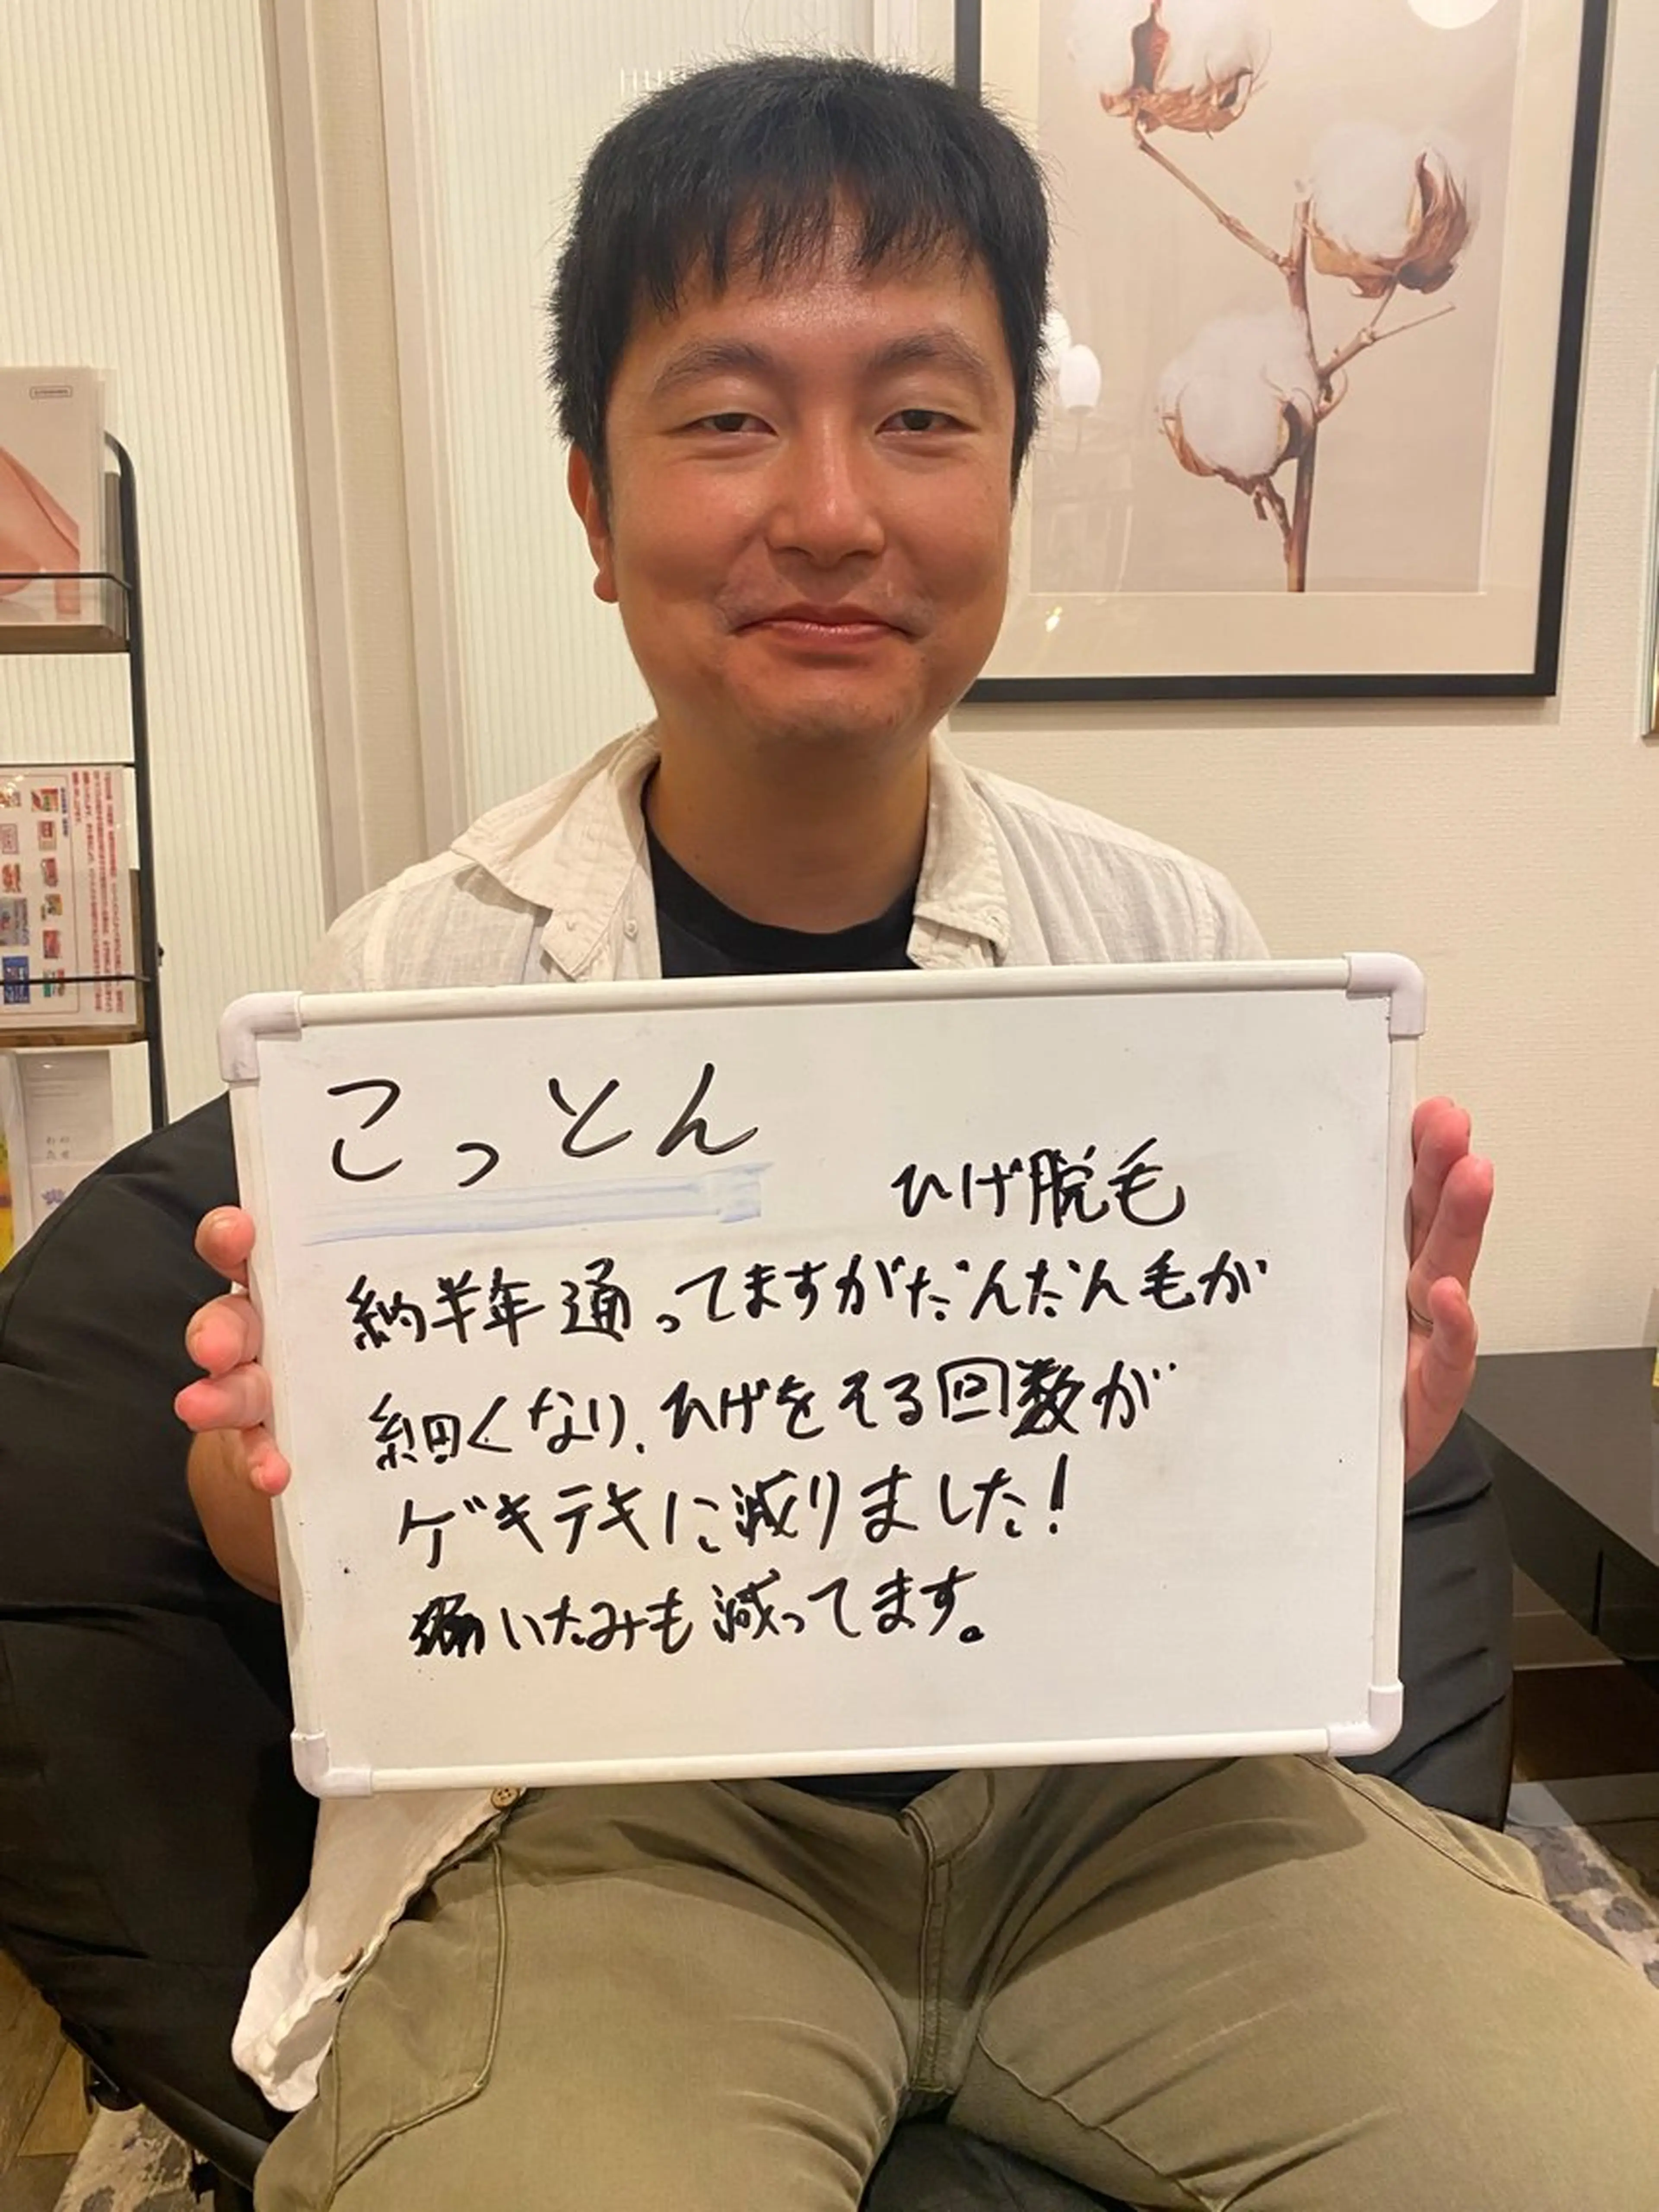 こっとん
ひげ脱毛
約半年通ってますがだんだん毛が
細くなり、ひげをそる回数が
ゲキテキに減りました!
いたみも減ってます。